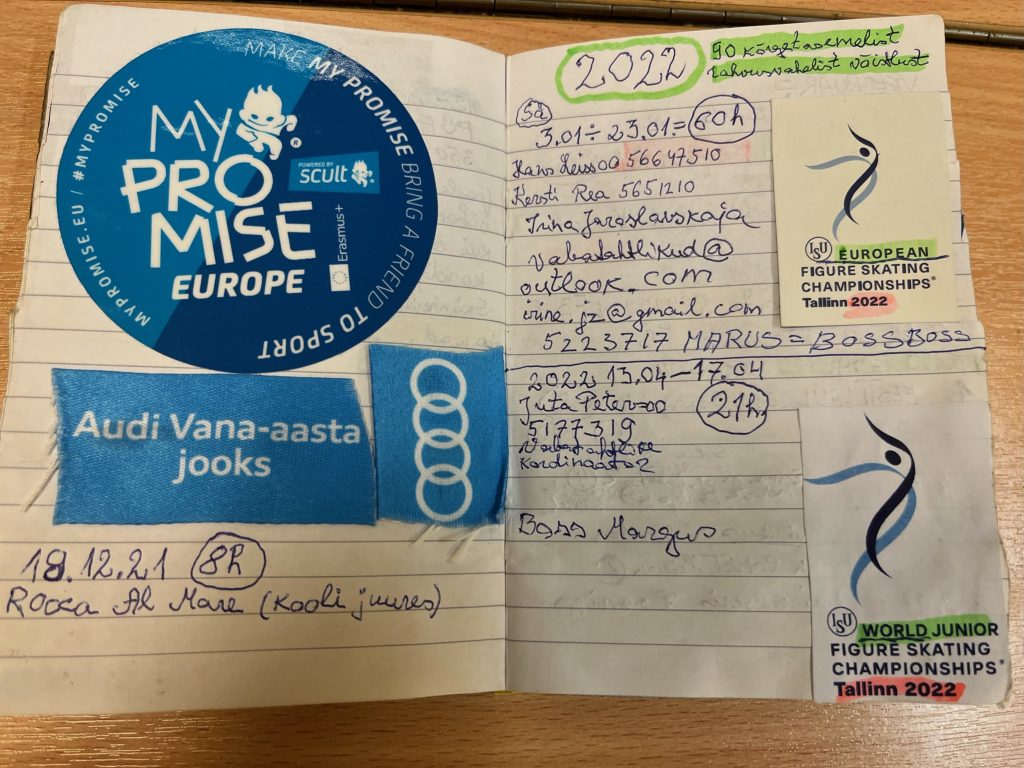 MAKE MY PROMISE BRING A FRIEND TO SPORT
MYPROMISE.EU / #MYPROMISE
MY
PRO
MISE
EUROPE
POWERED BY
SCULT
Erasmus+
Audi Vana-aasta
jooks
18.12.21 8h
Rocca Al Mare (kooli juures)
2022
90 kõrgetasemelist
rahvusvahelist võistlust
5d
3.01÷23.01=60h
Hans Leissoo 56647510
Kersti Rea 5651210
Irina Jaroslavskaja
vabatahtlikud@
outlook.com
irine.jz@gmail.com
5223717 MARUS=BOSSBOSS
2022 13.04–17.04
Juta Petersoo 21h
5177319
Vabatahtlike
Koordinaator
Boss Margus
ISU EUROPEAN
FIGURE SKATING
CHAMPIONSHIPS®
Tallinn 2022
ISU WORLD JUNIOR
FIGURE SKATING
CHAMPIONSHIPS®
Tallinn 2022